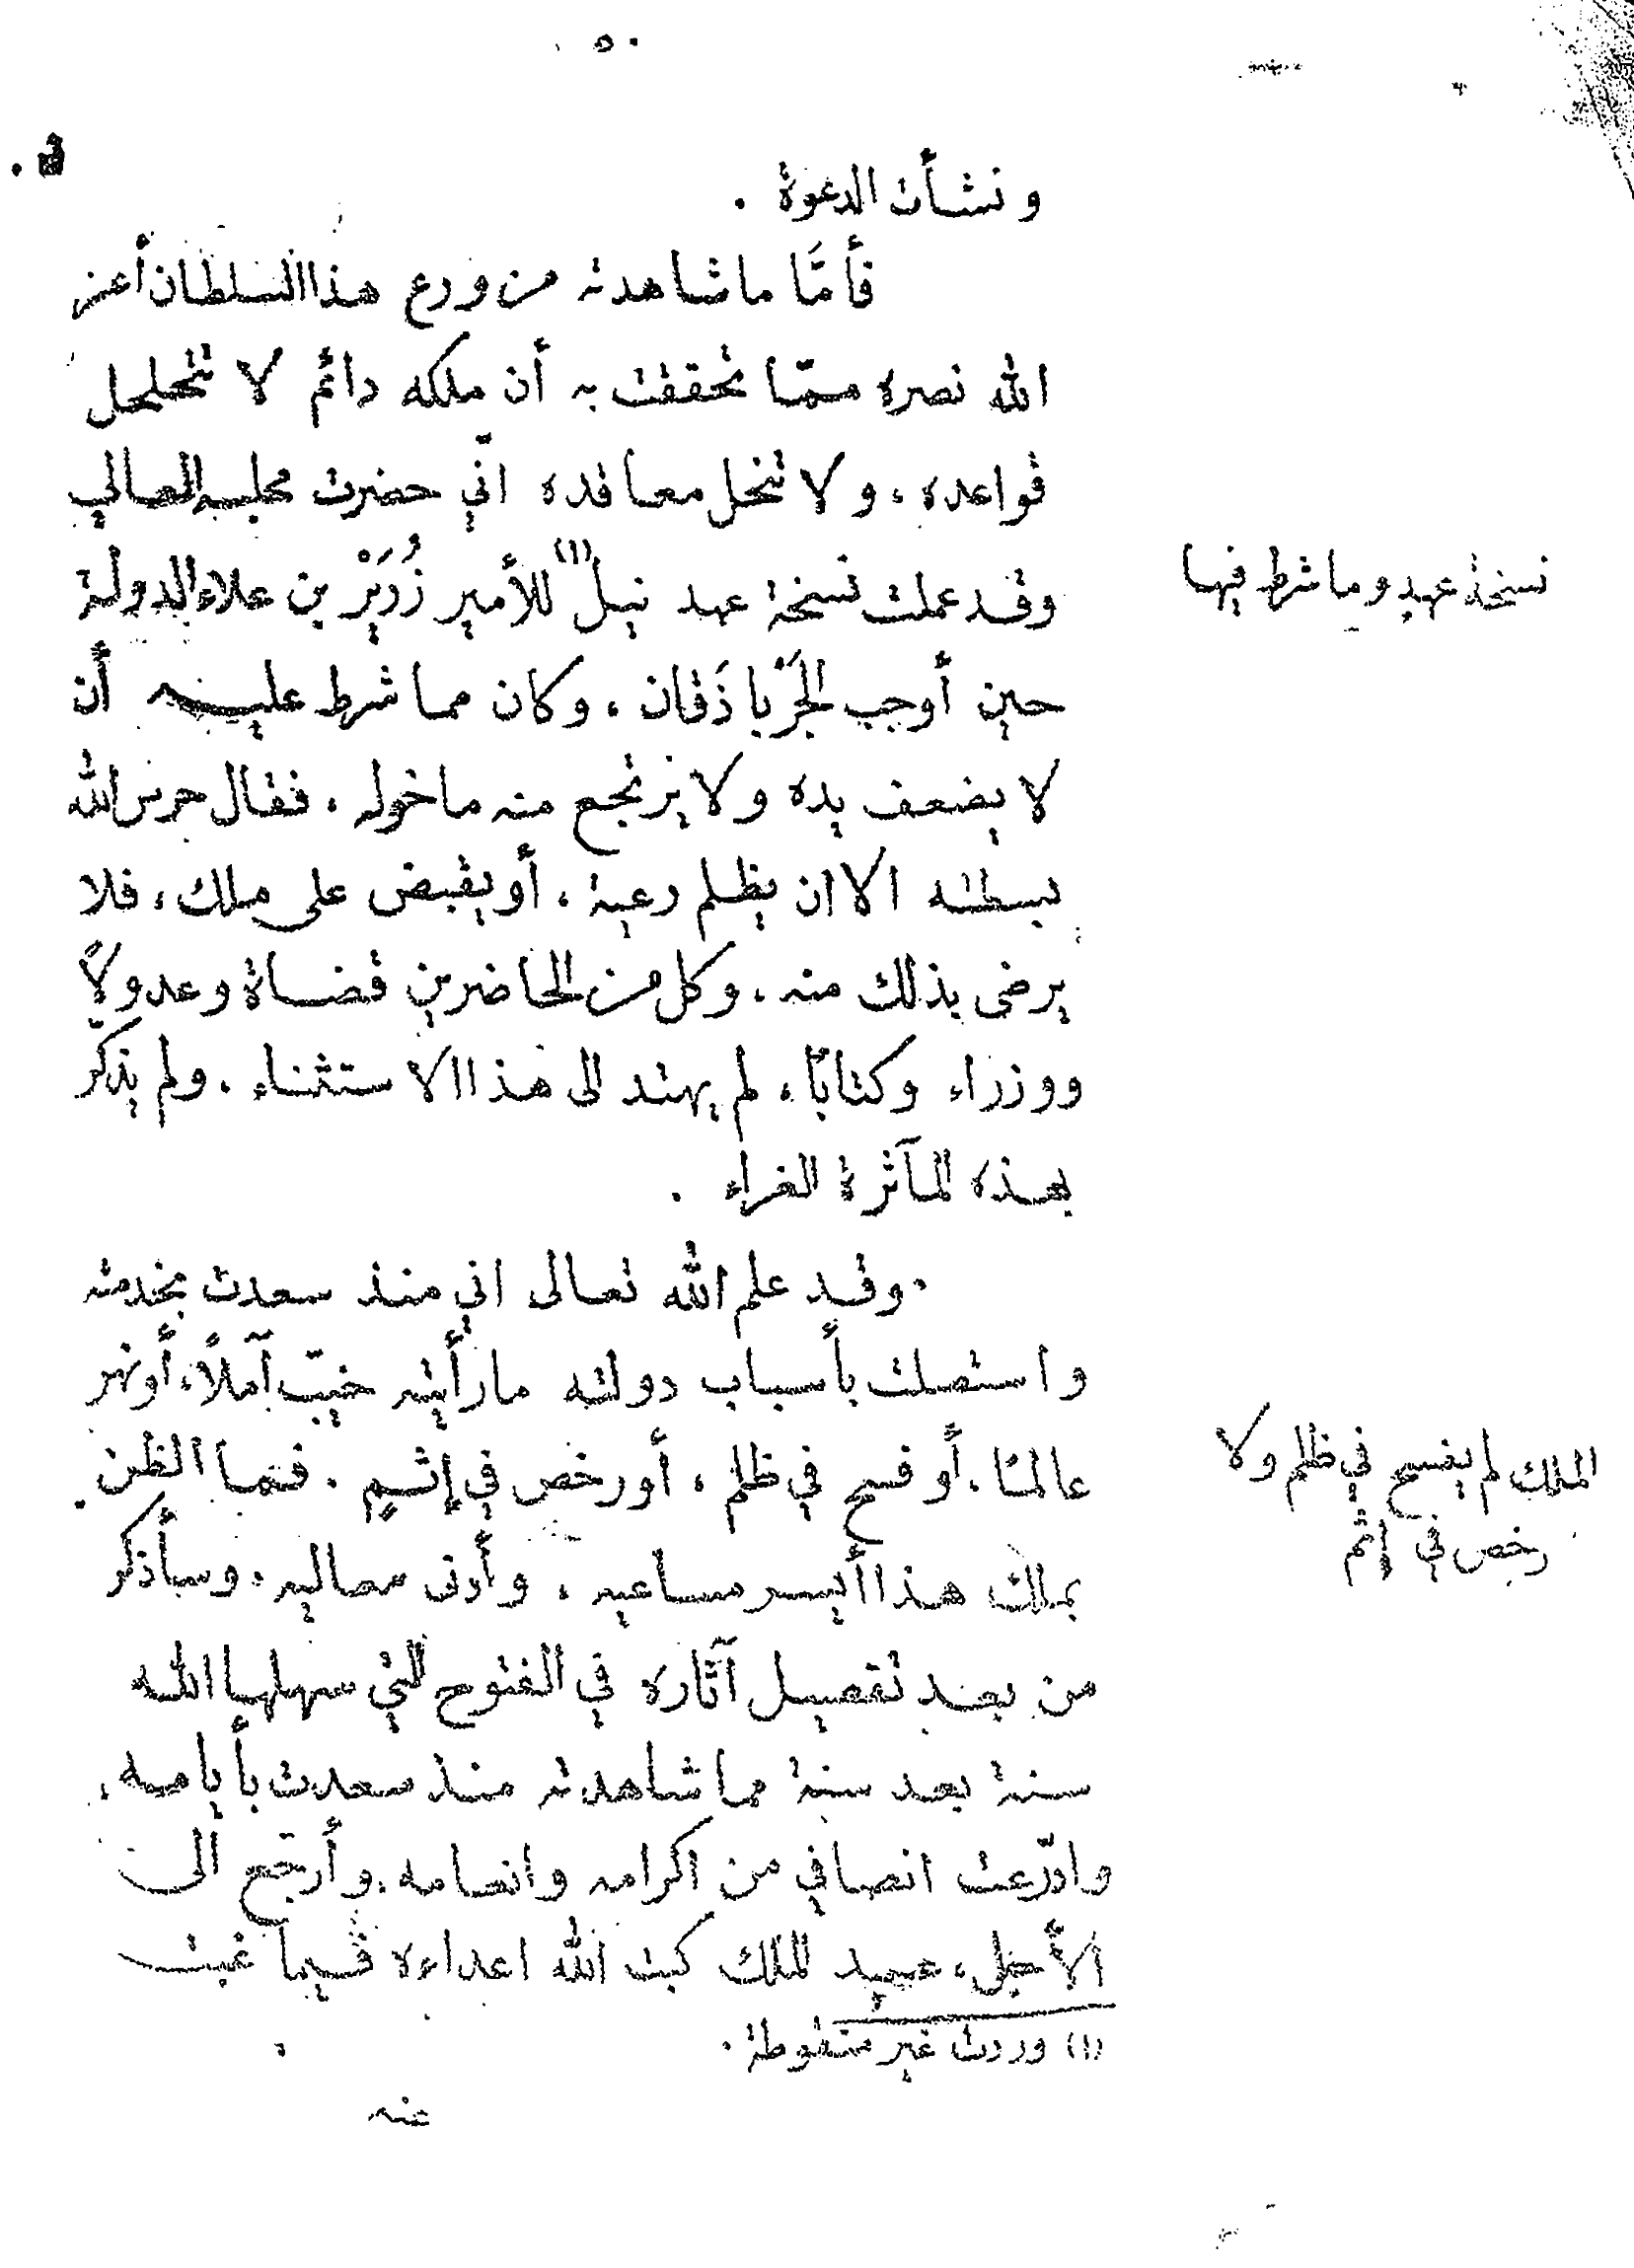 ٥٠
ونشأت الدعوة .
فأمّا ما شاهدته من ورع هذا السلطان أعز
الله نصره ممّا تحققت به أن ملكه دائم لا تتحلحل
قواعده، ولا تنحل معاقده انّي حضرت مجلسه العالي
وقد عملت نسخة عهد نيل (١) للأمير زُرَيْر بن علاء الدولة
نسخة عهد وما شرط فيها
حين أوجب الجَرْباذَقان، وكان مما شرط عليه أن
لا يضعف يده ولا يرتجع منه ما خوله . فقال حرس الله
بسطته الا ان يظلم رعية، أو يقبض على ملك، فلا
يرضى بذلك منه، وكل من الحاضرين قضاة وعدولاً
ووزراء وكتابًا، لم يهتد الى هذا الاستثناء . ولم يذكّر
بهذه المآثرة الغراء .
وقد علم الله تعالى اني منذ سعدت بخدمته
واستصلت بأسباب دولته ما رأيته خيّب آملاً، أو نهر
عالمًا، أو فسح في ظلم، أو رخص في إثم . فما الظن
الملك لم يفسح في ظلم ولا
رخص في إثم
بملك هذا أيسر مساعيه، وأدنى معاليه، وسأذكر
من بعد تفصيل آثاره في الفتوح التي سهلها الله
سنة بعد سنة مما شاهدته منذ سعدت بأيامه،
وادّرعت انصافي من اكرامه وانعامه، وأرتجع الى
الأجل، عميد الملك كبت الله اعداءه فيما غبت
(١) وردت غير منقوطة .
عنه